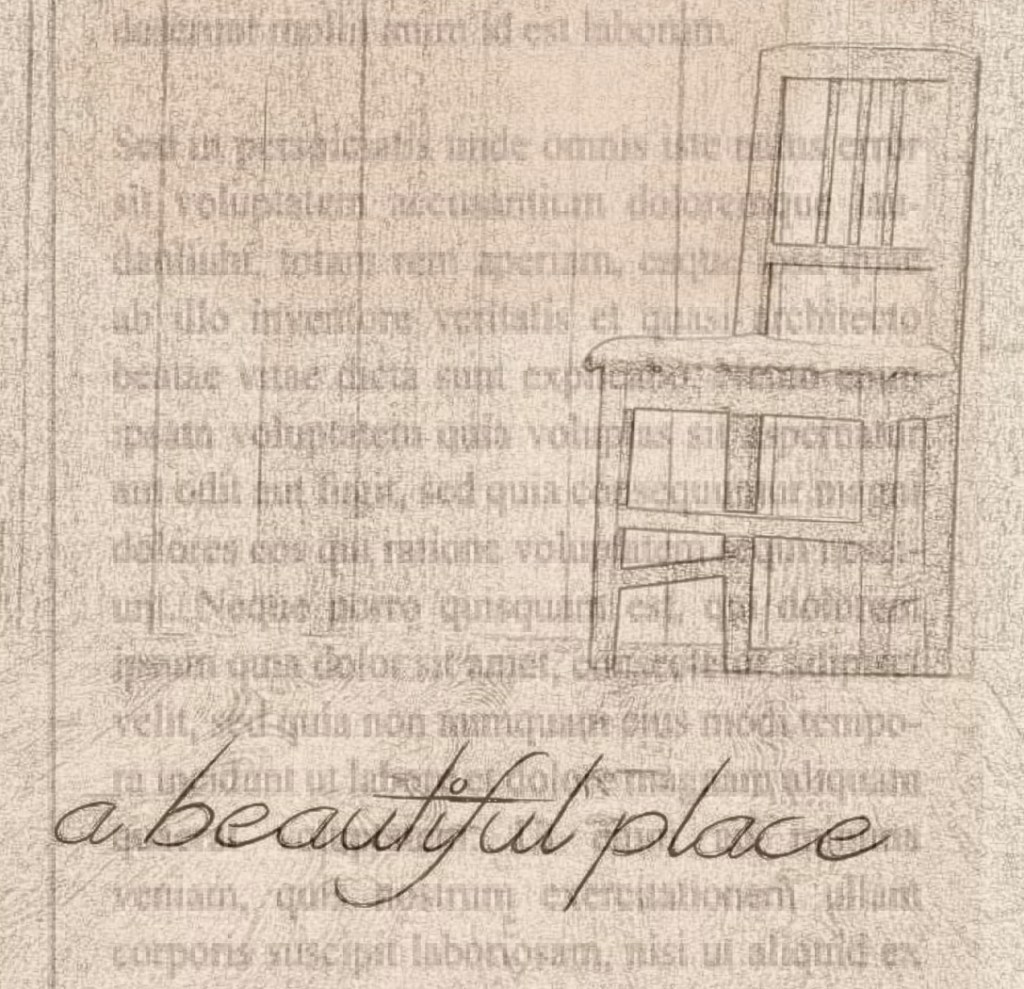 deserunt mollit anim id est laborum.
Sed ut perspiciatis unde omnis iste natus error
sit voluptatem accusantium doloremque lau-
dantium, totam rem aperiam, eaque
ab illo inventore veritatis et quasi architecto
beatae vitae dicta sunt explicabo. Nemo enim
ipsam voluptatem quia voluptas sit aspernatur
aut odit aut fugit, sed quia consequuntur magni
dolores eos qui ratione voluptatem sequi nesci-
unt. Neque porro quisquam est, qui dolorem
ipsum quia dolor sit amet, consectetur, adipisci
velit, sed quia non numquam eius modi tempo-
ra incidunt ut labore et dolore magnam aliquam
a beautiful place
veniam, quis nostrum exercitationem ullam
corporis suscipit laboriosam, nisi ut aliquid ex